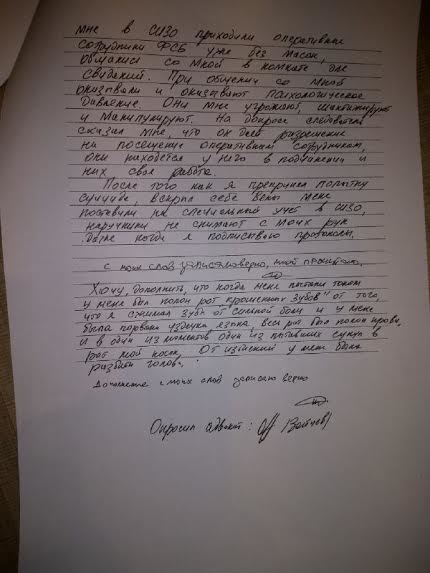 мне в СИЗО приходили оперативные
сотрудники ФСБ уже без масок,
общались со мной в комнате для
свиданий. При общении со мной
оказывали и оказывают психологическое
давление. Они мне угрожают, шантажируют
и манипулируют. На допросе следователь
сказал мне, что он дал разрешение
на посещение оперативным сотрудникам,
они находятся у него в подчинении и
них своя работа.
После того как я предпринял попытку
суицида, вскрыл себе вены меня
поставили на специальный учёт в СИЗО,
наручники не снимают с моих рук
даже когда я подписываю протоколы.
с моих слов записано верно, мной прочитано.
Хочу дополнить, что когда меня пытали током
у меня был полон рот "крошенных зубов" от того,
что я сжимал зубы от сильной боли и у меня
была порвана уздечка языка, весь рот был полон крови,
и в один из моментов один из пытавших сунул в
рот мой носок. От избиений у меня была
разбита голова.
Дополнение с моих слов записано верно
Опросил адвокат: